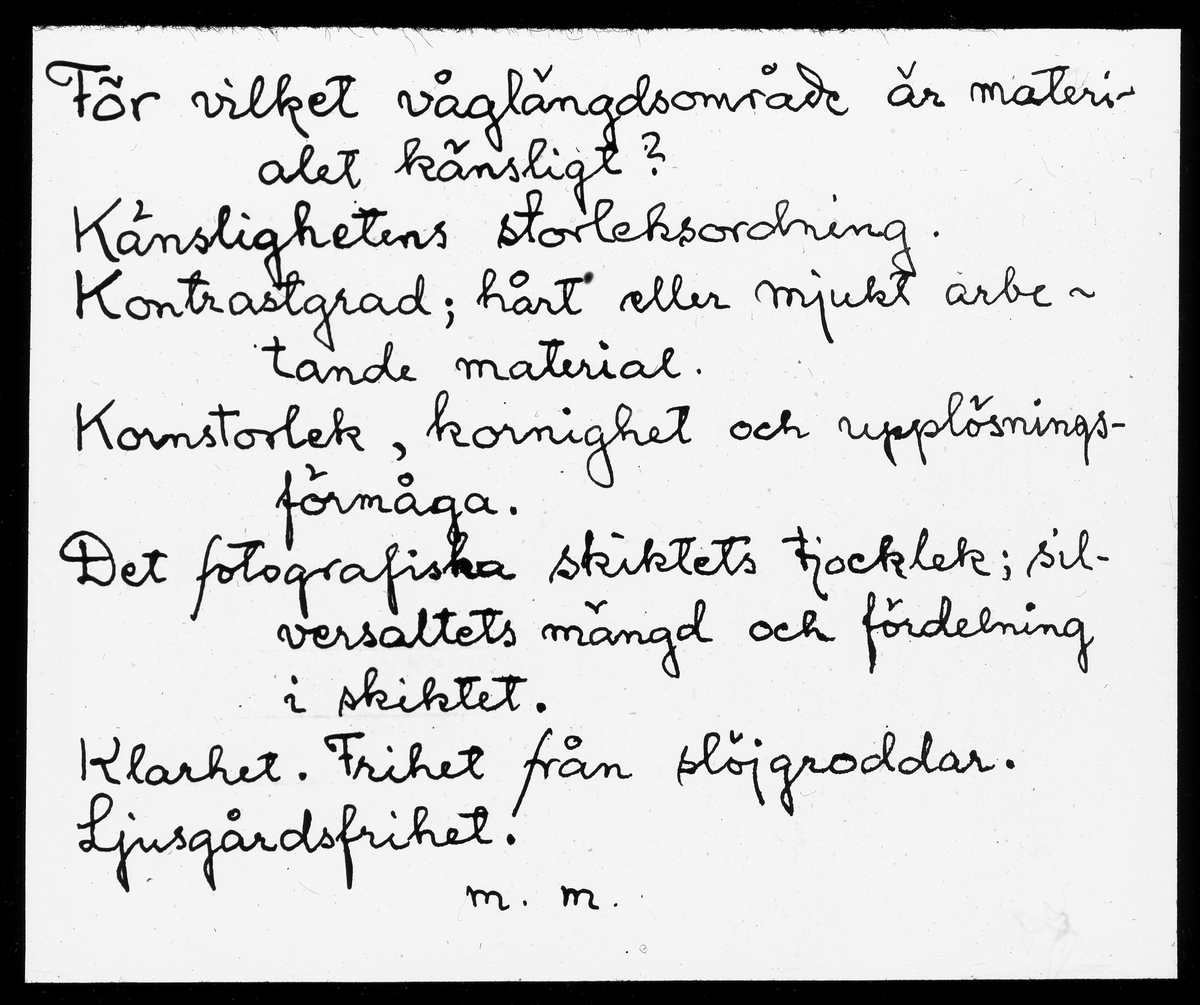 För vilket våglängdsområde är materi-
alet känsligt?
Känslighetens storleksordning.
Kontrastgrad; hårt eller mjukt arbe-
tande material.
Kornstorlek, kornighet och upplösnings-
förmåga.
Det fotografiska skiktets tjocklek; sil-
versaltets mängd och fördelning
i skiktet.
Klarhet. Frihet från slöjgroddar.
Ljusgårdsfrihet.
m. m.